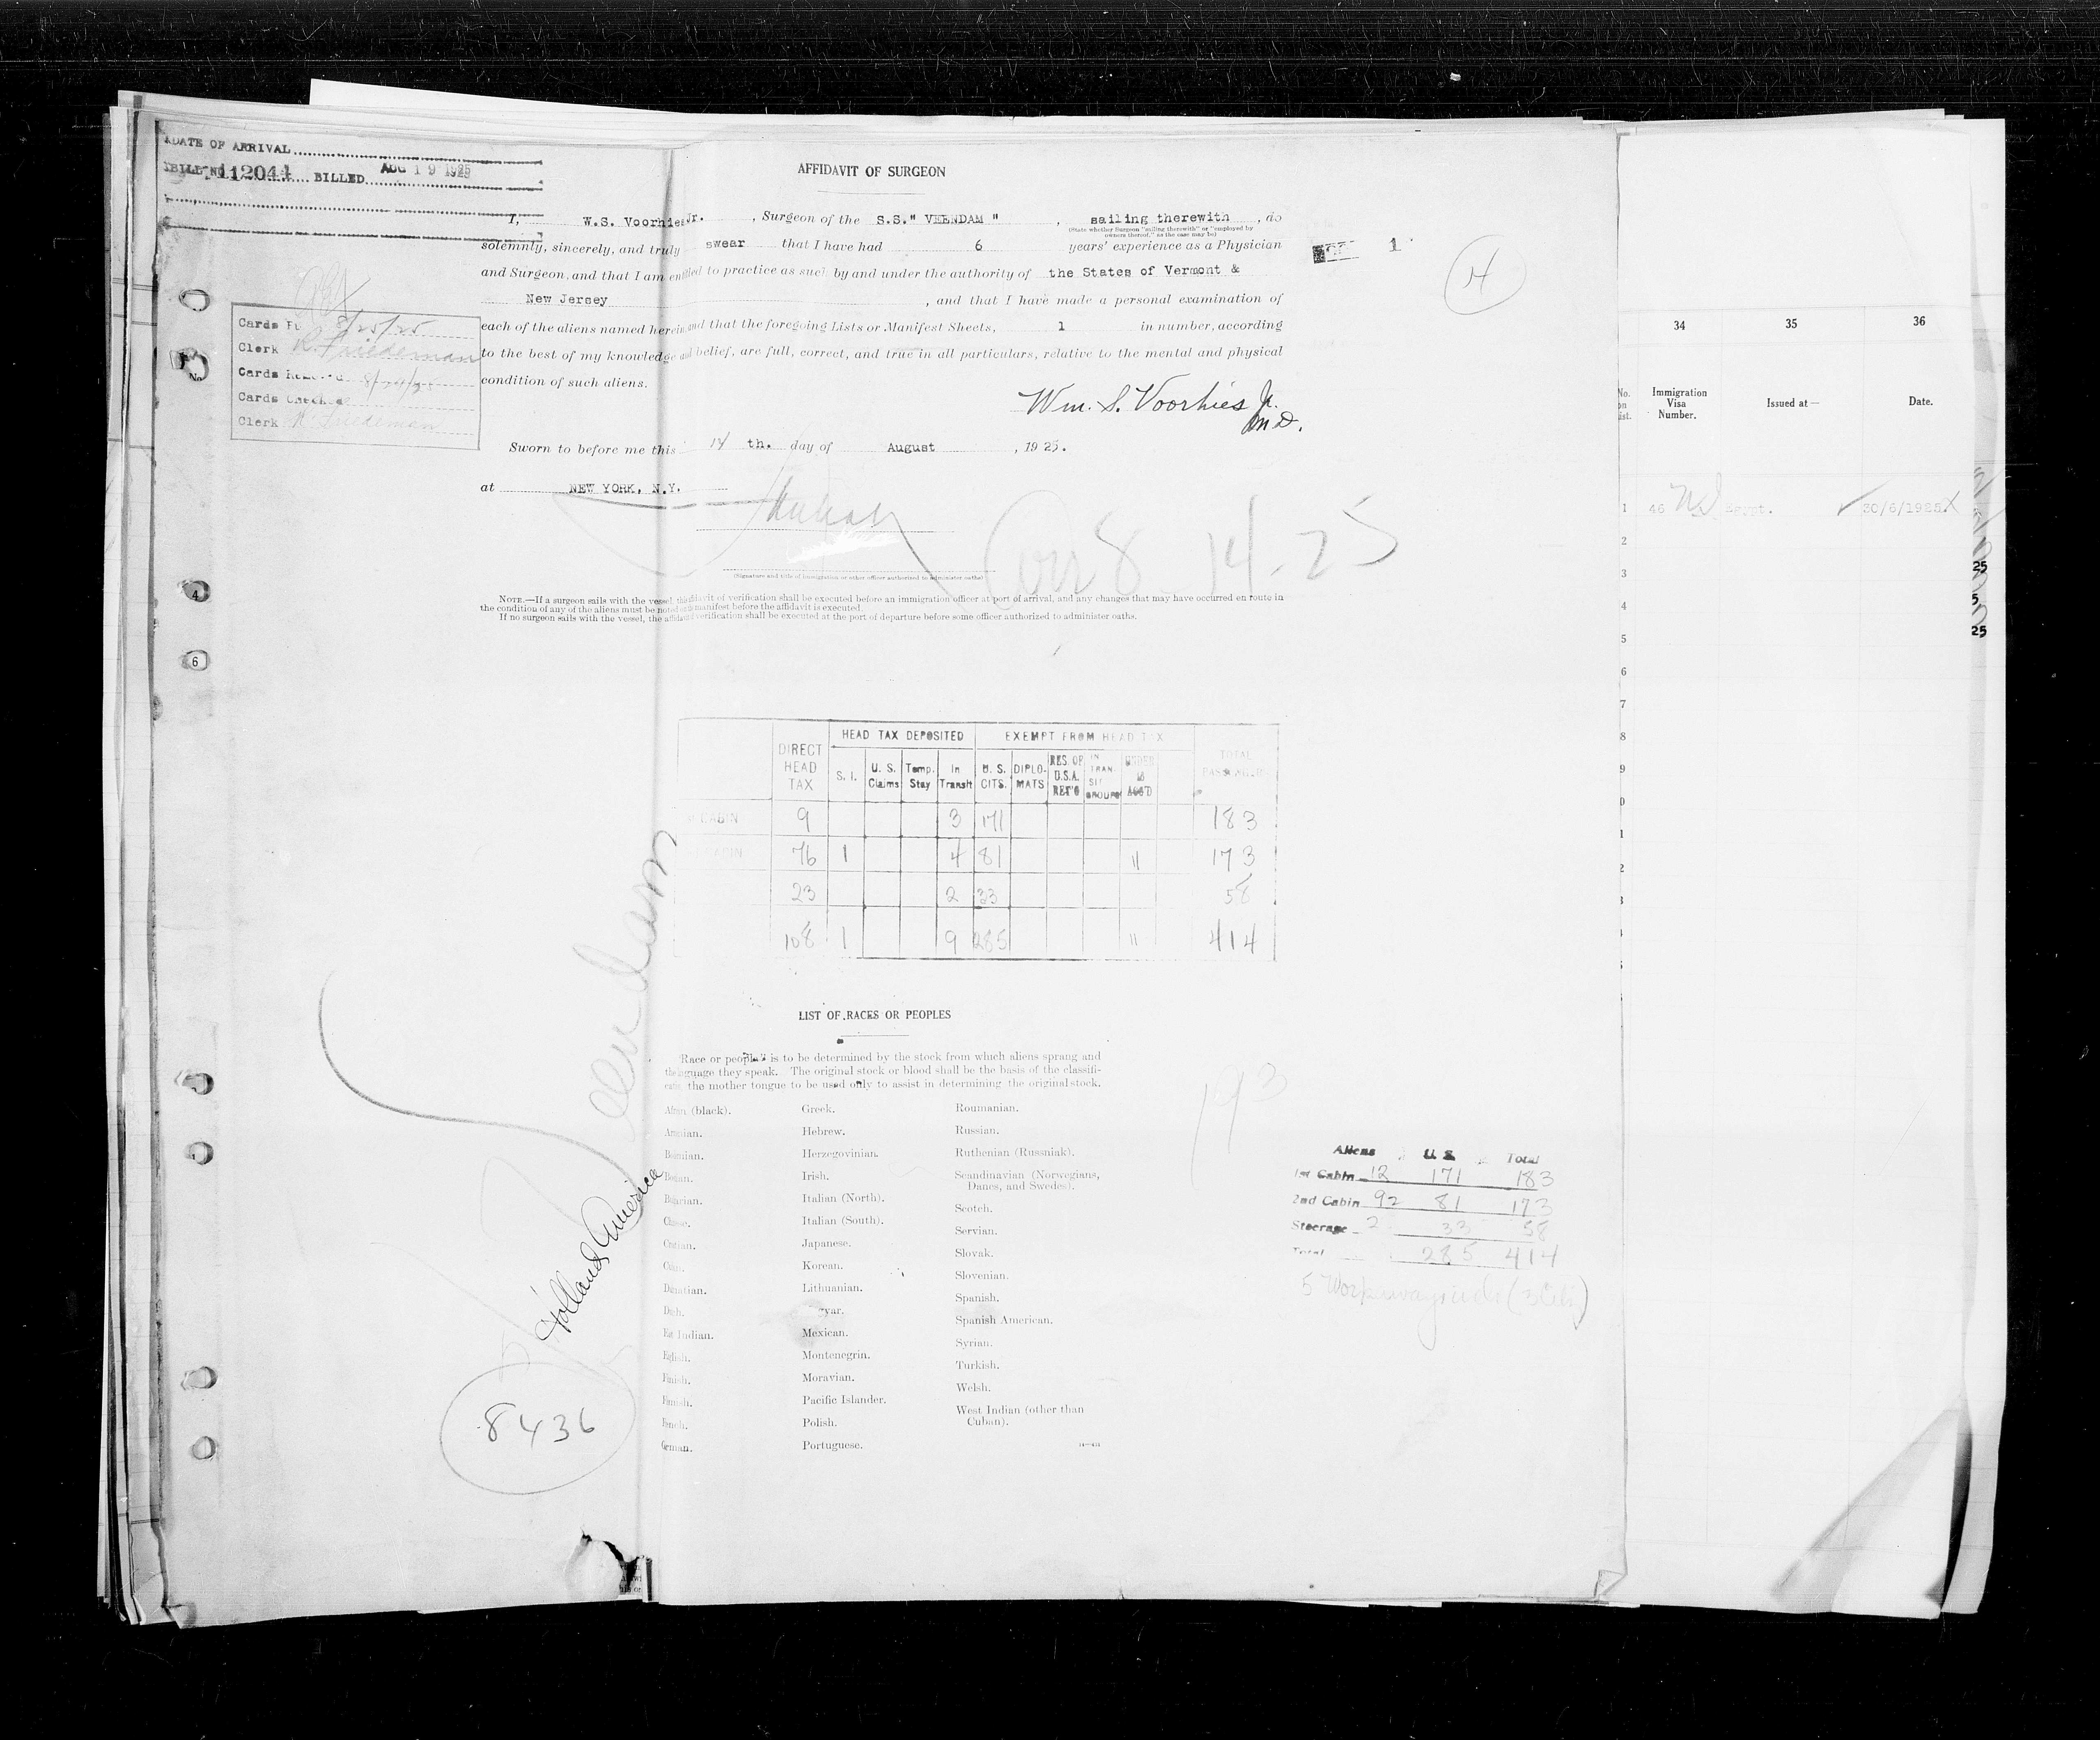 DATE OF ARRIVAL
BILL No 112044 BILLED AUG 19 1925
AFFIDAVIT OF SURGEON
I, W.S. Voorhies Jr. , Surgeon of the S.S." VEENDAM " , sailing therewith , do
(State whether Surgeon "sailing therewith" or "employed by
owners thereof," as the case may be)
solemnly, sincerely, and truly swear that I have had 6 years' experience as a Physician
and Surgeon, and that I am entitled to practice as such by and under the authority of the States of Vermont &
New Jersey , and that I have made a personal examination of
each of the aliens named herein and that the foregoing Lists or Manifest Sheets, 1 in number, according
to the best of my knowledge and belief, are full, correct, and true in all particulars, relative to the mental and physical
condition of such aliens.
Wm. S. Voorhies Jr.
M.D.
Sworn to before me this 14 th. day of August , 1925.
at NEW YORK, N.Y.
8 14-25
(Signature and title of immigration or other officer authorized to administer oaths)
NOTE.—If a surgeon sails with the vessel, this affidavit of verification shall be executed before an immigration officer at port of arrival, and any changes that may have occurred en route in
the condition of any of the aliens must be noted on the manifest before the affidavit is executed.
If no surgeon sails with the vessel, the affidavit of verification shall be executed at the port of departure before some officer authorized to administer oaths.
Cards 8/25/25
Clerk R. Friedeman
Cards
Cards Checked
Clerk R Friedeman
1
14
4
6
HEAD TAX DEPOSITED EXEMPT FROM HEAD TAX
DIRECT HEAD TAX S. I. U. S. Claims Temp. Stay In Transit U. S. CITS. DIPLO-MATS RES. OF U.S.A. RET'G IN TRAN-SIT GROUPS UNDER 16 ACC'D TOTAL PASSENGERS
CABIN 9 3 171 183
CABIN 76 1 4 81 11 173
23 2 33 58
108 1 9 285 11 414
LIST OF RACES OR PEOPLES
"Race or people" is to be determined by the stock from which aliens sprang and
the language they speak. The original stock or blood shall be the basis of the classifi-
cation, the mother tongue to be used only to assist in determining the original stock.
African (black). Greek. Roumanian.
Armenian. Hebrew. Russian.
Bohemian. Herzegovinian. Ruthenian (Russniak).
Bosnian. Irish. Scandinavian (Norwegians,
Danes, and Swedes).
Bulgarian. Italian (North).
Scotch.
Chinese. Italian (South).
Servian.
Croatian. Japanese.
Slovak.
Cuban. Korean.
Slovenian.
Dalmatian. Lithuanian.
Spanish.
Dutch. Magyar.
Spanish American.
East Indian. Mexican.
Syrian.
English. Montenegrin.
Turkish.
Finnish. Moravian.
Welsh.
Flemish. Pacific Islander.
West Indian (other than
Cuban).
French. Polish.
German. Portuguese.
Veendam
Holland America
8436
193
Aliens U. S. Total
1st Cabin 12 171 183
2nd Cabin 92 81 173
Steerage 2 33 58
Total 285 414
34 35 36
No. on List. Immigration Visa Number. Issued at— Date.
1 46 Egypt. 30/6/1925
2
3
4
5
6
7
8
9
0
1
2
3
25
5
25